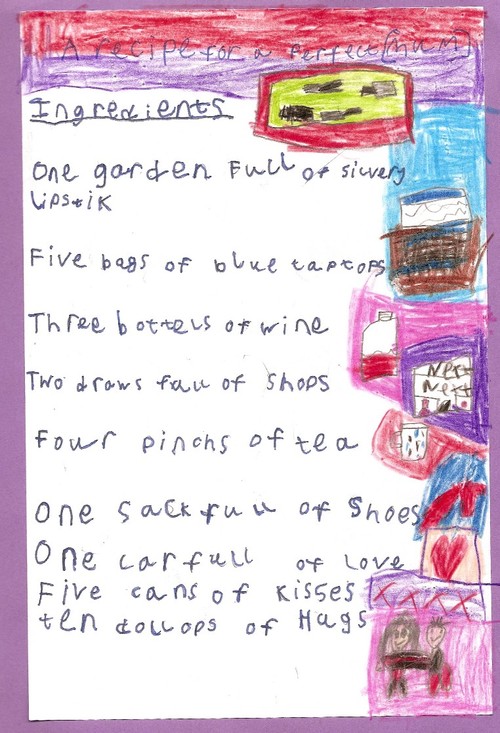 A recipe for a Perfect (mum)
Ingredients
One garden Full of silvery
Lipstik
Five bags of blue laptops
Three bottels of wine
Next
Next
Two draws full of shops
Four pinchs of tea
One sack full of shoes
One car full of Love
Five cans of kisses
ten dollops of Hugs